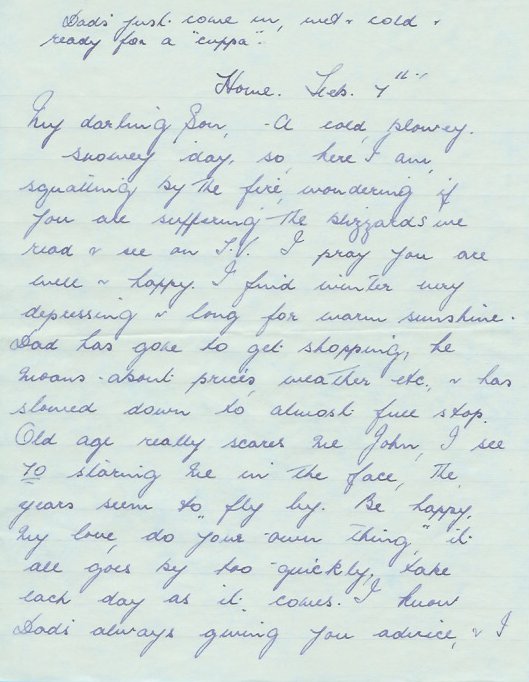 Dad's just come in, wet & cold &
ready for a "cuppa".
Home. Feb. 7th.
My darling Son, - A cold, blowey.
snowey day, so, here I am,
squatting by the fire, wondering if
you are suffering the blizzards we
read & see on T.V. I pray you are
well & happy. I find winter very
depressing & long for warm sunshine.
Dad has gone to get shopping, he
moans about prices, weather etc., & has
slowed down to almost full stop.
Old age really scares me John, I see
70 staring me in the face, the
years seem to fly by. Be happy,
my love, do "your own thing," it
all goes by too quickly, take
each day as it comes. I know
Dad's always giving you advice, & I